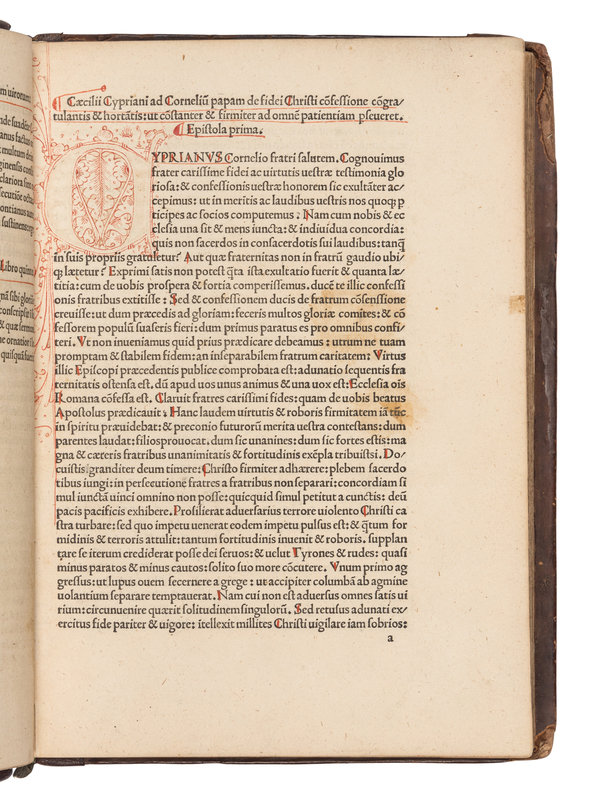 m uirornam
nde suadēn
anus factus
multum de
ginensis confi
clariora sim
secutiōe octa
ontianus aur
sustinens reg
Libro quinto
gnā sibi gloriā
conscripsit lib
& quæ sermoni
ne ornatior sit
quisquā fuerit
Cæcilii Cypriani ad Corneliū papam de fidei Christi cōfessione cōgra⸗
tulantis & hortātis: ut cōstanter & firmiter ad omnē patientiam pseueret.
Epistola prima.
YPRIANUS Cornelio fratri salutem. Cognouimus
frater carissime fidei ac uirtutis uestræ testimonia glo
riosa: & confessionis uestræ honorem sic exultāter ac⸗
cepimus: ut in meritis ac laudibus uestris nos quoq; p
ticipes ac socios computemus. Nam cum nobis & ec
clesia una sit & mens iuncta: & indiuidua concordia:
quis non sacerdos in consacerdotis sui laudibus: tanq̄
in suis propriis gratuletur? Aut quæ fraternitas non in fratrū gaudio ubi⸗
q; lætetur? Exprimi satis non potest q̄ta ista exultatio fuerit & quanta læ⸗
titia: cum de uobis prospera & fortia comperissemus. ducē te illic confessi
onis fratribus extitisse: Sed & confessionem ducis de fratrum cōsensione
creuisse: ut dum præcedis ad gloriam: feceris multos gloriæ comites: & cō
fessorem populū suaseris fieri: dum primus paratus es pro omnibus confi⸗
teri. Vt non inueniamus quid prius prædicare debeamus: utrum ne tuam
promptam & stabilem fidem: an inseparabilem fratrum caritatem: Virtus
illic Episcopi præcedentis publice comprobata est: adunatio sequentis fra
ternitatis ostensa est. dū apud uos unus animus & una uox est: Ecclesia oīs
Romana cōfessa est. Claruit fratres carissimi fides: quam de uobis beatus
Apostolus prædicauit: Hanc laudem uirtutis & roboris firmitatem iā tūc
in spiritu præuidebat: & preconio futurorū merita uestra contestans: dum
parentes laudat: filios prouocat. dum sic unanines: dum sic fortes estis: ma
gna & cæteris fratribus unanimitatis & fortitudinis exēpla tribuistsi. Do⸗
cuistis granditer deum timere: Christo firmiter adhærere: plebem sacerdo
tibus iungi: in persecutione fratres a fratribus non separari: concordiam si
mul iunctā uinci omnino non posse: quicquid simul petitut a cunctis: deū
pacis pacificis exhibere. Prosilierat aduersarius terrore uiolento Christi ca
stra turbare: sed quo impetu uenerat eodem impetu pulsus est: & q̄tum for
midinis & terroris attulit: tantum fortitudinis inuenit & roboris. supplan
tare se iterum crediderat posse dei seruos: & uelut Tyrones & rudes: quasi
minus paratos & minus cautos: solito suo more cōcutere. Vnum primo ag
gressus: ut lupus ouem secernere a grege: ut accipiter columbā ab agmine
uolantium separare temptauerat. Nam cui non est aduersus omnes satis ui
rium: circunuenire quærit solitudinem singulorū. Sed retusus adunati ex⸗
ercitus fide pariter & uigore: ītellexit millites Christi uigilare iam sobrios:
a